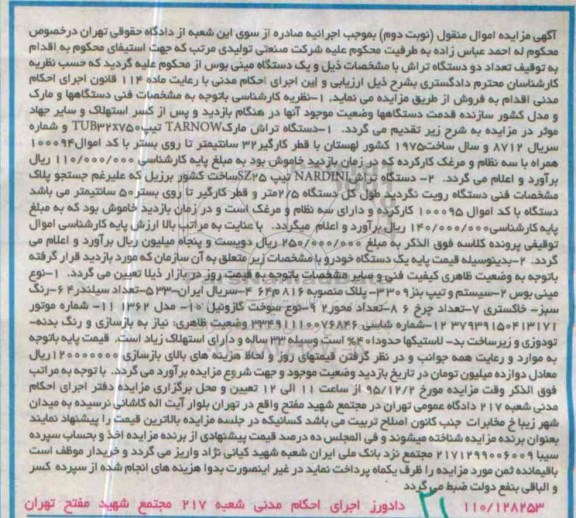 آگهی مزایده اموال منقول (نوبت دوم) بموجب اجرائیه صادره از سوی این شعبه از دادگاه حقوقی تهران درخصوص
محکوم له احمد عباس زاده به طرفیت محکوم علیه شرکت صنعتی تولیدی مرتب که جهت استیفای محکوم به اقدام
به توقیف تعداد دو دستگاه تراش با مشخصات ذیل و یک دستگاه مینی بوس از محکوم علیه گردید که حسب نظریه
کارشناسان محترم دادگستری بشرح ذیل ارزیابی و این اجرای احکام مدنی با رعایت ماده ۱۱۴ قانون اجرای احکام
مدنی اقدام به فروش از طریق مزایده می نماید. ۱-نظریه کارشناسی باتوجه به مشخصات فنی دستگاهها و مارک
و مدل کشور سازنده قدمت دستگاهها وضعیت موجود آنها در هنگام بازدید و پس از کسر استهلاک و سایر جهاد
موثر در مزایده به شرح زیر تقدیم می گردد. ۱-دستگاه تراش مارک TARNOW تیپ TUB۳۲X۷۵۰ و شماره
سریال ۸۷۱۲ و سال ساخت ۱۹۷۵ کشور لهستان با قطر کارگیر ۳۲ سانتیمتر تا روی بستر با کد اموال ۱۰۰۰۹۴
همراه با سه نظام و مرغک کارکرده که در زمان بازدید خاموش بود به مبلغ پایه کارشناسی ۱۱۰/۰۰۰/۰۰۰ ریال
برآورد و اعلام می گردد. ۲- دستگاه تراش NARDINI تیپ SZ۲۵ ساخت کشور برزیل که علیرغم جستجو پلاک
مشخصات فنی دستگاه رویت نگردید طول کل دستگاه ۲/۵متر و قطر کارگیر تا روی بستر ۵۰ سانتیمتر می باشد
دستگاه با کد اموال ۱۰۰۰۹۵ کارکرده و دارای سه نظام و مرغک است و در زمان بازدید خاموش بود که به مبلغ
پایه کارشناسی ۱۴۰/۰۰۰/۰۰۰ ریال برآورد و اعلام میگردد. با عنایت به مراتب بالا ارزش پایه کارشناسی اموال
توقیفی پرونده کلاسه فوق الذکر به مبلغ ۲۵۰/۰۰۰/۰۰۰ ریال دویست و پنجاه میلیون ریال برآورد و اعلام می
گردد. ۲-بدینوسیله قیمت پایه یک دستگاه خودرو با مشخصات زیر متعلق به آن سازمان که مورد بازدید قرار گرفته
باتوجه به وضعیت ظاهری کیفیت فنی و سایر مشخصات باتوجه به قیمت روز در بازار ذیلا تعیین می گردد. ۱-نوع
مینی بوس ۲-سیستم و تیپ بنز ۳۳۰۹-پلاک منصوبه ۸۱۶ م ۶۴ ۴-سریال ایران-۵۳۳-تعداد سیلندر ۴ ۶-رنگ
سبز- خاکستری ۷-تعداد چرخ ۶ ۸-تعداد محور ۲ ۹-نوع سوخت گازوئیل ۱۰- مدل ۱۳۶۲ ۱۱- شماره موتور
۳۷۹۳۹۱۵۰۴۱۳۱۷۱ ۱۲-شماره شاسی ۳۳۴۹۱۱۱۰۰۷۶۸۴۶ وضعیت ظاهری: نیاز به بازسازی و رنگ بدنه-
تودوزی و زیرساخت بد- لاستیکها حدودا ۴۰% است وسیله ۳۳ ساله و دارای استهلاک زیاد است. قیمت پایه باتوجه
به موارد و رعایت همه جوانب و در نظر گرفتن قیمتهای روز و لحاظ هزینه های بالای بازسازی ۱۲۰۰۰۰۰۰۰ریال
معادل دوازده میلیون تومان در تاریخ بازدید وضعیت موجود و جهت شروع مزایده برآورد می گردد. با توجه به مراتب
فوق الذکر وقت مزایده مورخ ۹۵/۱۲/۲ از ساعت ۱۱ الی ۱۲ تعیین و محل برگزاری مزایده دفتر اجرای احکام
مدنی شعبه ۲۱۷ دادگاه عمومی تهران در مجتمع شهید مفتح واقع در تهران بلوار آیت اله کاشانی نرسیده به میدان
شهر زیبا خ مخابرات جنب کانون اصلاح تربیت می باشد کسانیکه در جلسه مزایده بالاترین قیمت را پیشنهاد نمایند
بعنوان برنده مزایده شناخته میشوند و فی المجلس ده درصد قیمت پیشنهادی از برنده مزایده اخذ و بحساب سپرده
سیبا ۲۱۷۱۲۹۹۰۰۶۰۰۹ مجتمع نزد بانک ملی ایران شعبه شهید کیانی نژاد واریز می گردد و خریدار موظف است
باقیمانده ثمن مورد مزایده را ظرف یکماه پرداخت نماید در غیر اینصورت بدوا هزینه های انجام شده از سپرده کسر
و الباقی بنفع دولت ضبط می گردد
۱۱۰/۱۲۸۲۵۳ دادورز اجرای احکام مدنی شعبه ۲۱۷ مجتمع شهید مفتح تهران